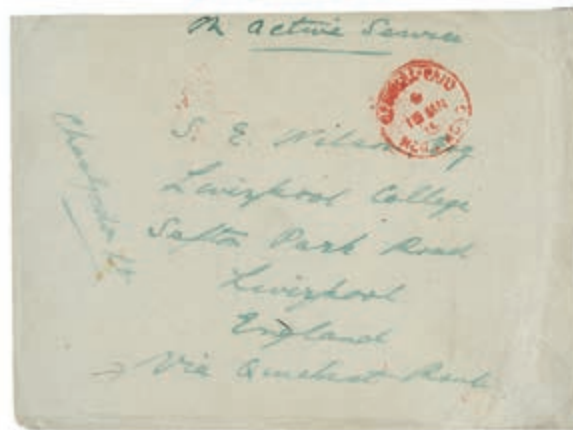 On Active Service
S. E. Wilson Esq
Liverpool College
Sefton Park Road
Liverpool
England
Via Quickest Route